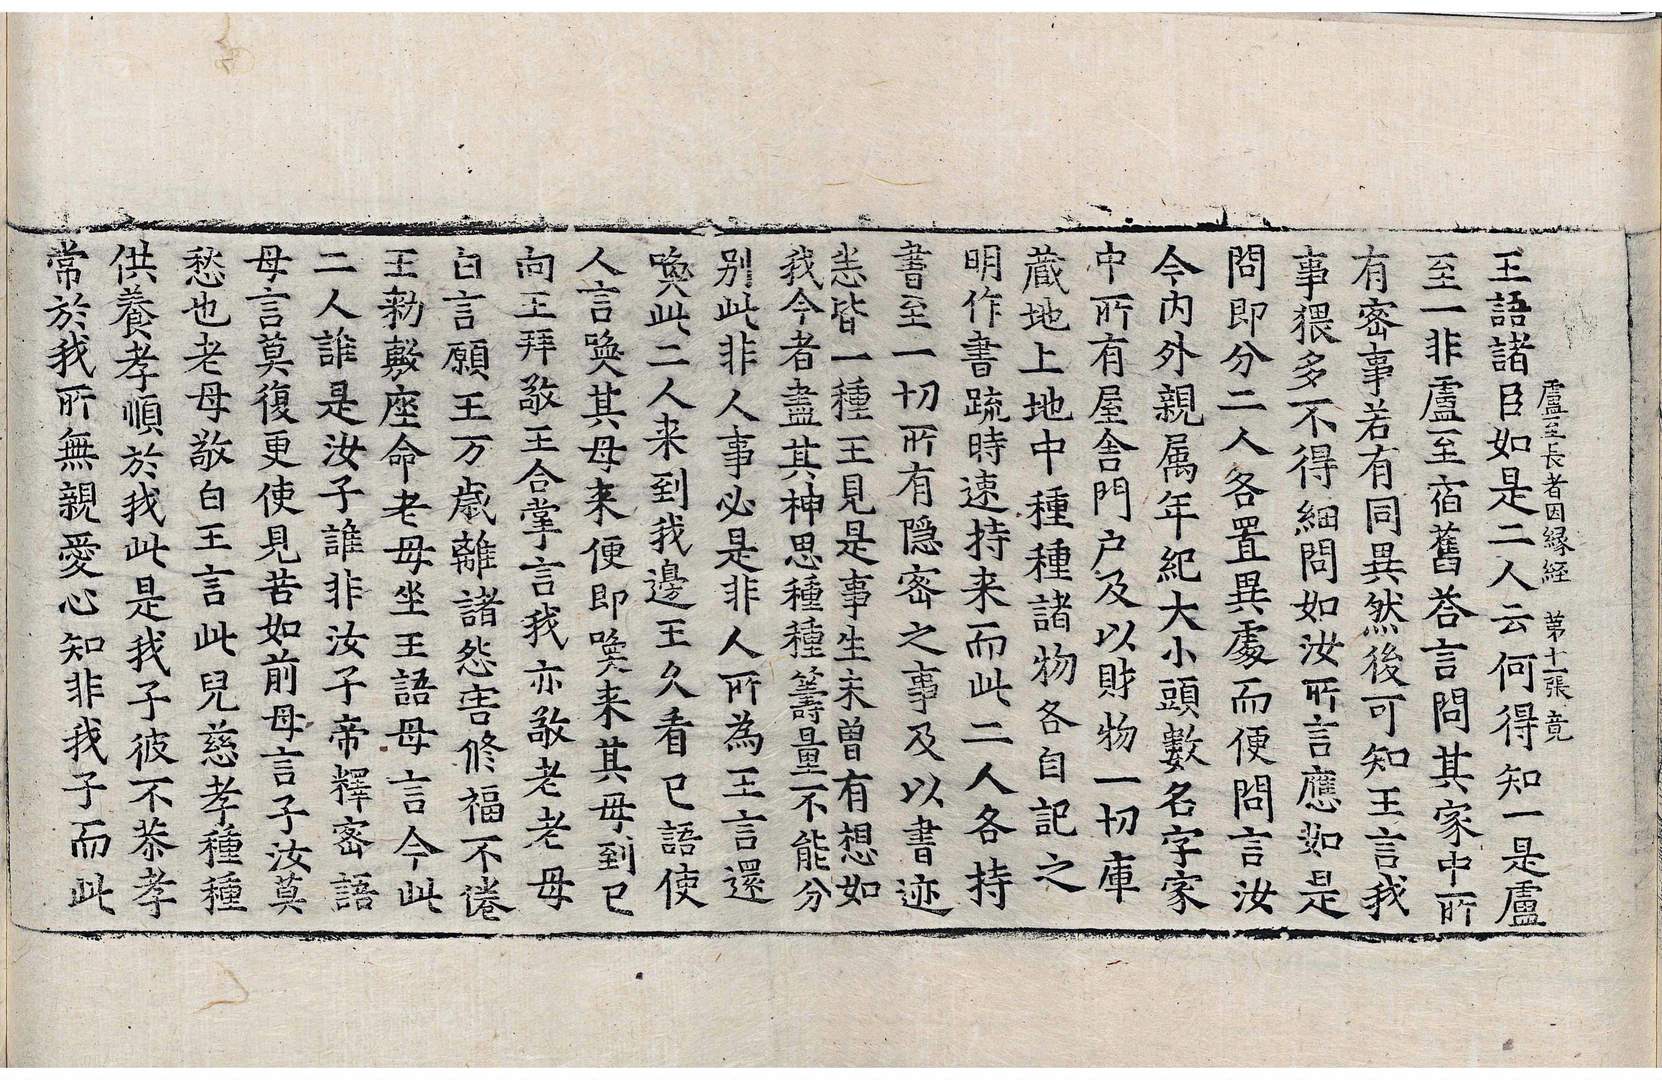 盧至長者因緣経 第十一張 竟
王語諸臣如是二人云何得知一是盧
至一非盧至宿舊荅言問其家中所
有密事若有同異然後可知王言我
事猥多不得細問如汝所言應如是
問即分二人各置異處而便問言汝
今内外親属年紀大小頭數名字家
中所有屋舎門户及以財物一切庫
藏地上地中種種諸物各自記之
明作書疏時速持来而此二人各持
書至一切所有隱密之事及以書迹
悉皆一種王見是事生未曾有想如
我今者盡其神思種種籌量不能分
別此非人事必是非人所為王言還
喚此二人来到我邊王久看已語使
人言喚其母来便即喚来其母到已
向王拜敬王合掌言我亦敬老老母
白言願王万歳離諸怨害修福不倦
王勑敷座命老母坐王語母言今此
二人誰是汝子誰非汝子帝釋密語
母言莫復更使見苦如前母言子汝莫
愁也老母敬白王言此兒慈孝種種
供養孝順於我此是我子彼不恭孝
常於我所無親愛心知非我子而此